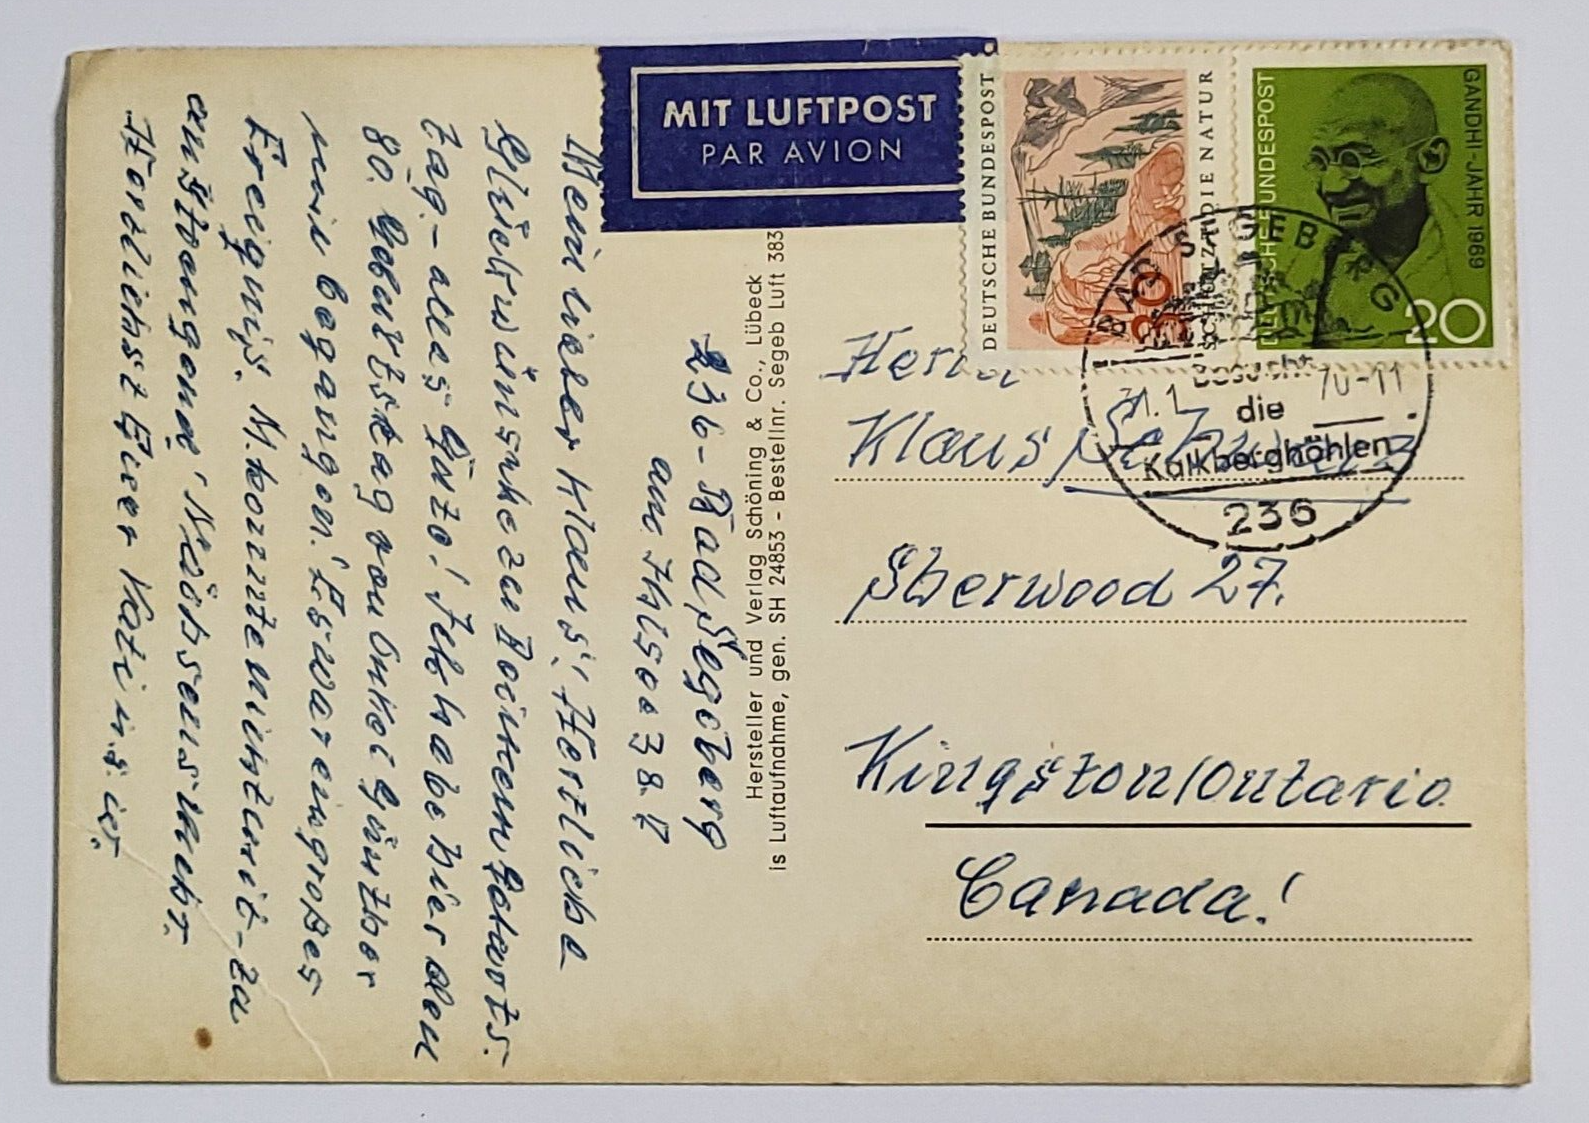 MIT LUFTPOST
PAR AVION
DEUTSCHE BUNDESPOST
30
SCHÜTZT DIE NATUR
DEUTSCHE BUNDESPOST
GANDHI-JAHR 1969
20
BAD SEGEBERG
Besucht
31.1 70-11
die
Kalkberghöhlen
236
Herrn
Klaus
Sherwood 27.
Kingston/Ontario
Canada!
Hersteller und Verlag Schöning & Co., Lübeck
is Luftaufnahme, gen. SH 24853 - Bestellnr. Segeb Luft 383
236-Bad Segeberg
am Ihlsee 38.
Mein lieber Klaus! Herzliche
Glückwünsche zu Deinem Geburts-
tag - alles Gute! Ich habe hier den
80. Geburtstag von Onkel Günther
mit begangen! Es war ein großes
Ereignis. M. konnte nicht mit - zu
anstrengend! Nächsens mehr.
Herzlichst Eure Kati